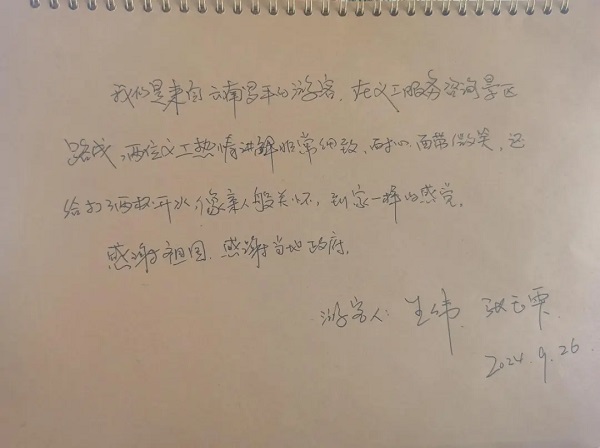 我们是来自云南昌平的游客,在义工服务咨询景区
路线,两位义工热情讲解非常细致、耐心、面带微笑,还
给打了两杯开水像亲人般关怀,到家一样的感觉。
感谢祖国、感谢当地政府。
游客人:王纬、张
2024.9.26